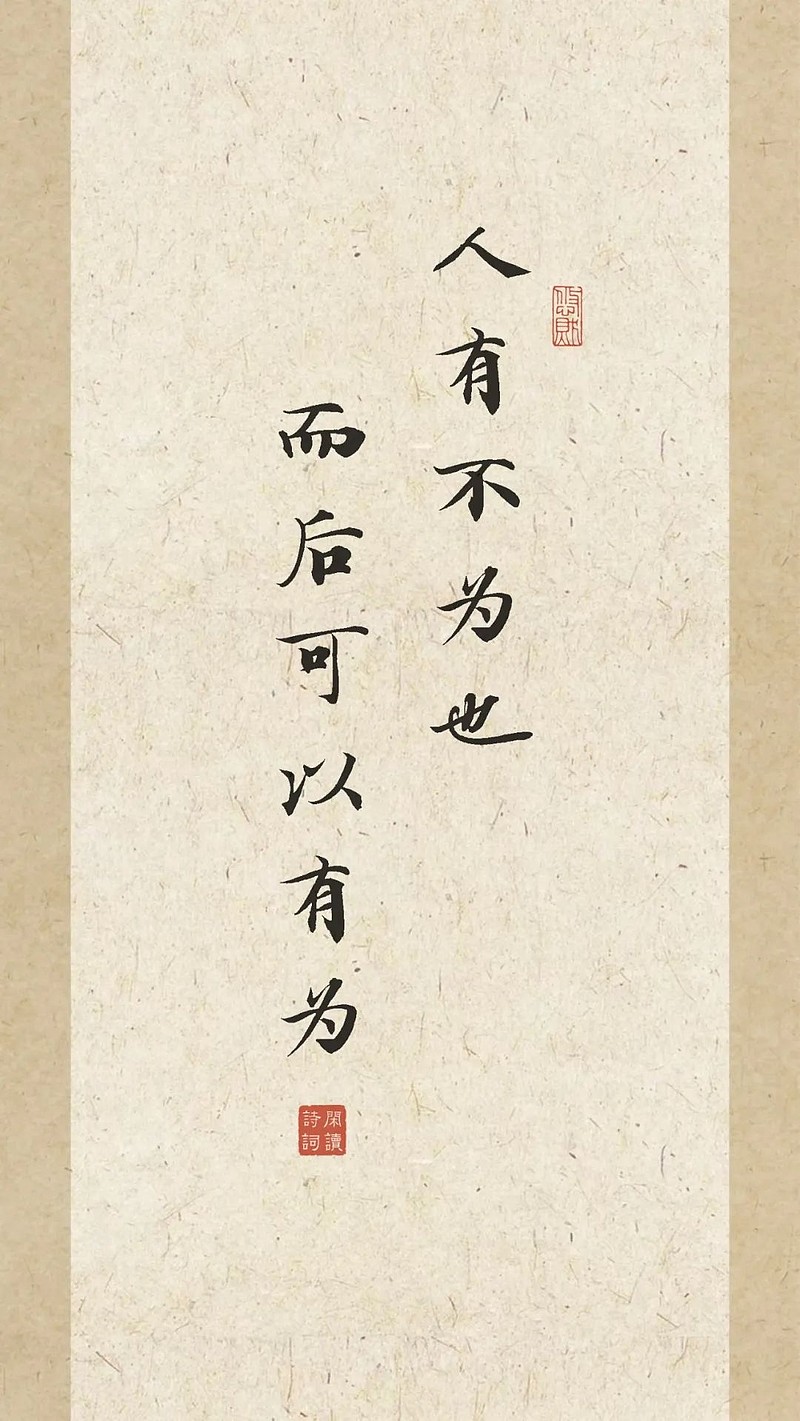 人有不为也
而后可以有为
閑讀
詩詞